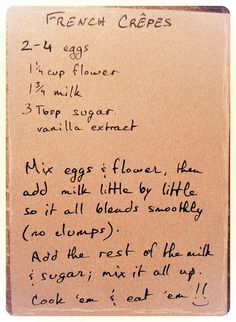 FRENCH CRÊPES
2-4 eggs
1 1/4 cup flower
1 3/4 milk
3 Tbsp sugar.
vanilla extract
Mix eggs & flower, then
add milk little by little
so it all blends smoothly
(no clumps).
Add the rest of the milk
& sugar; mix it all up.
Cook 'em & eat 'em!!